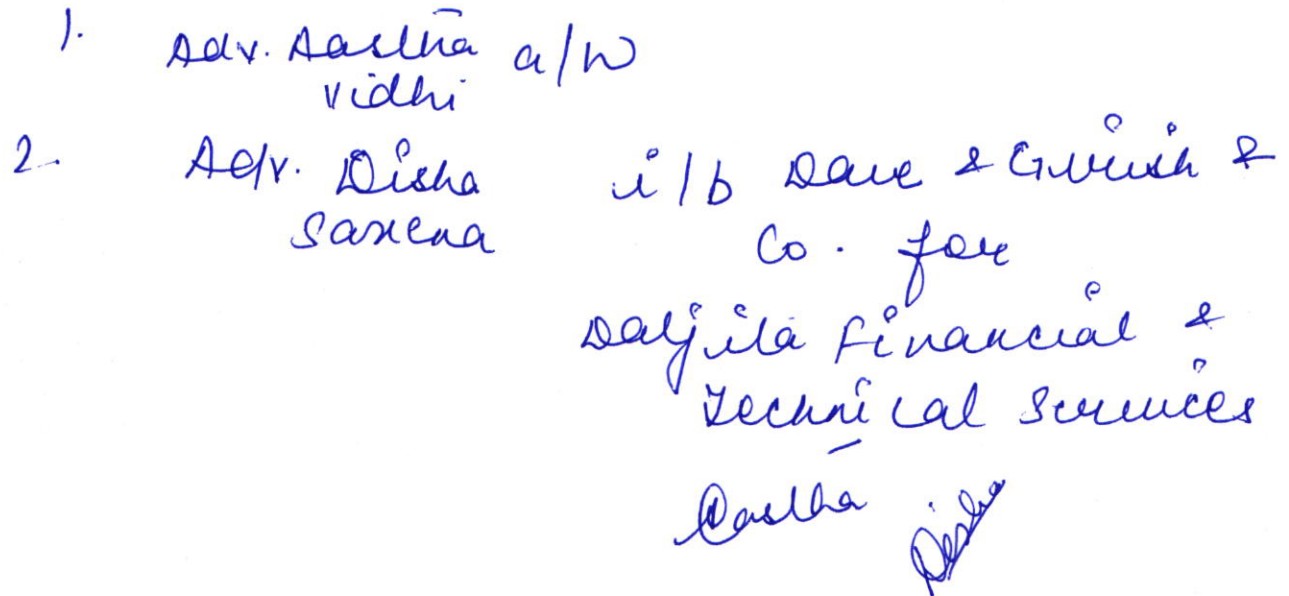 1. Adv. Aastha a/w
Vidhi
2. Adv. Disha i/b Dave & Girish &
Saxena Co. for
Daljita Financial &
Technical Services
Aastha Disha